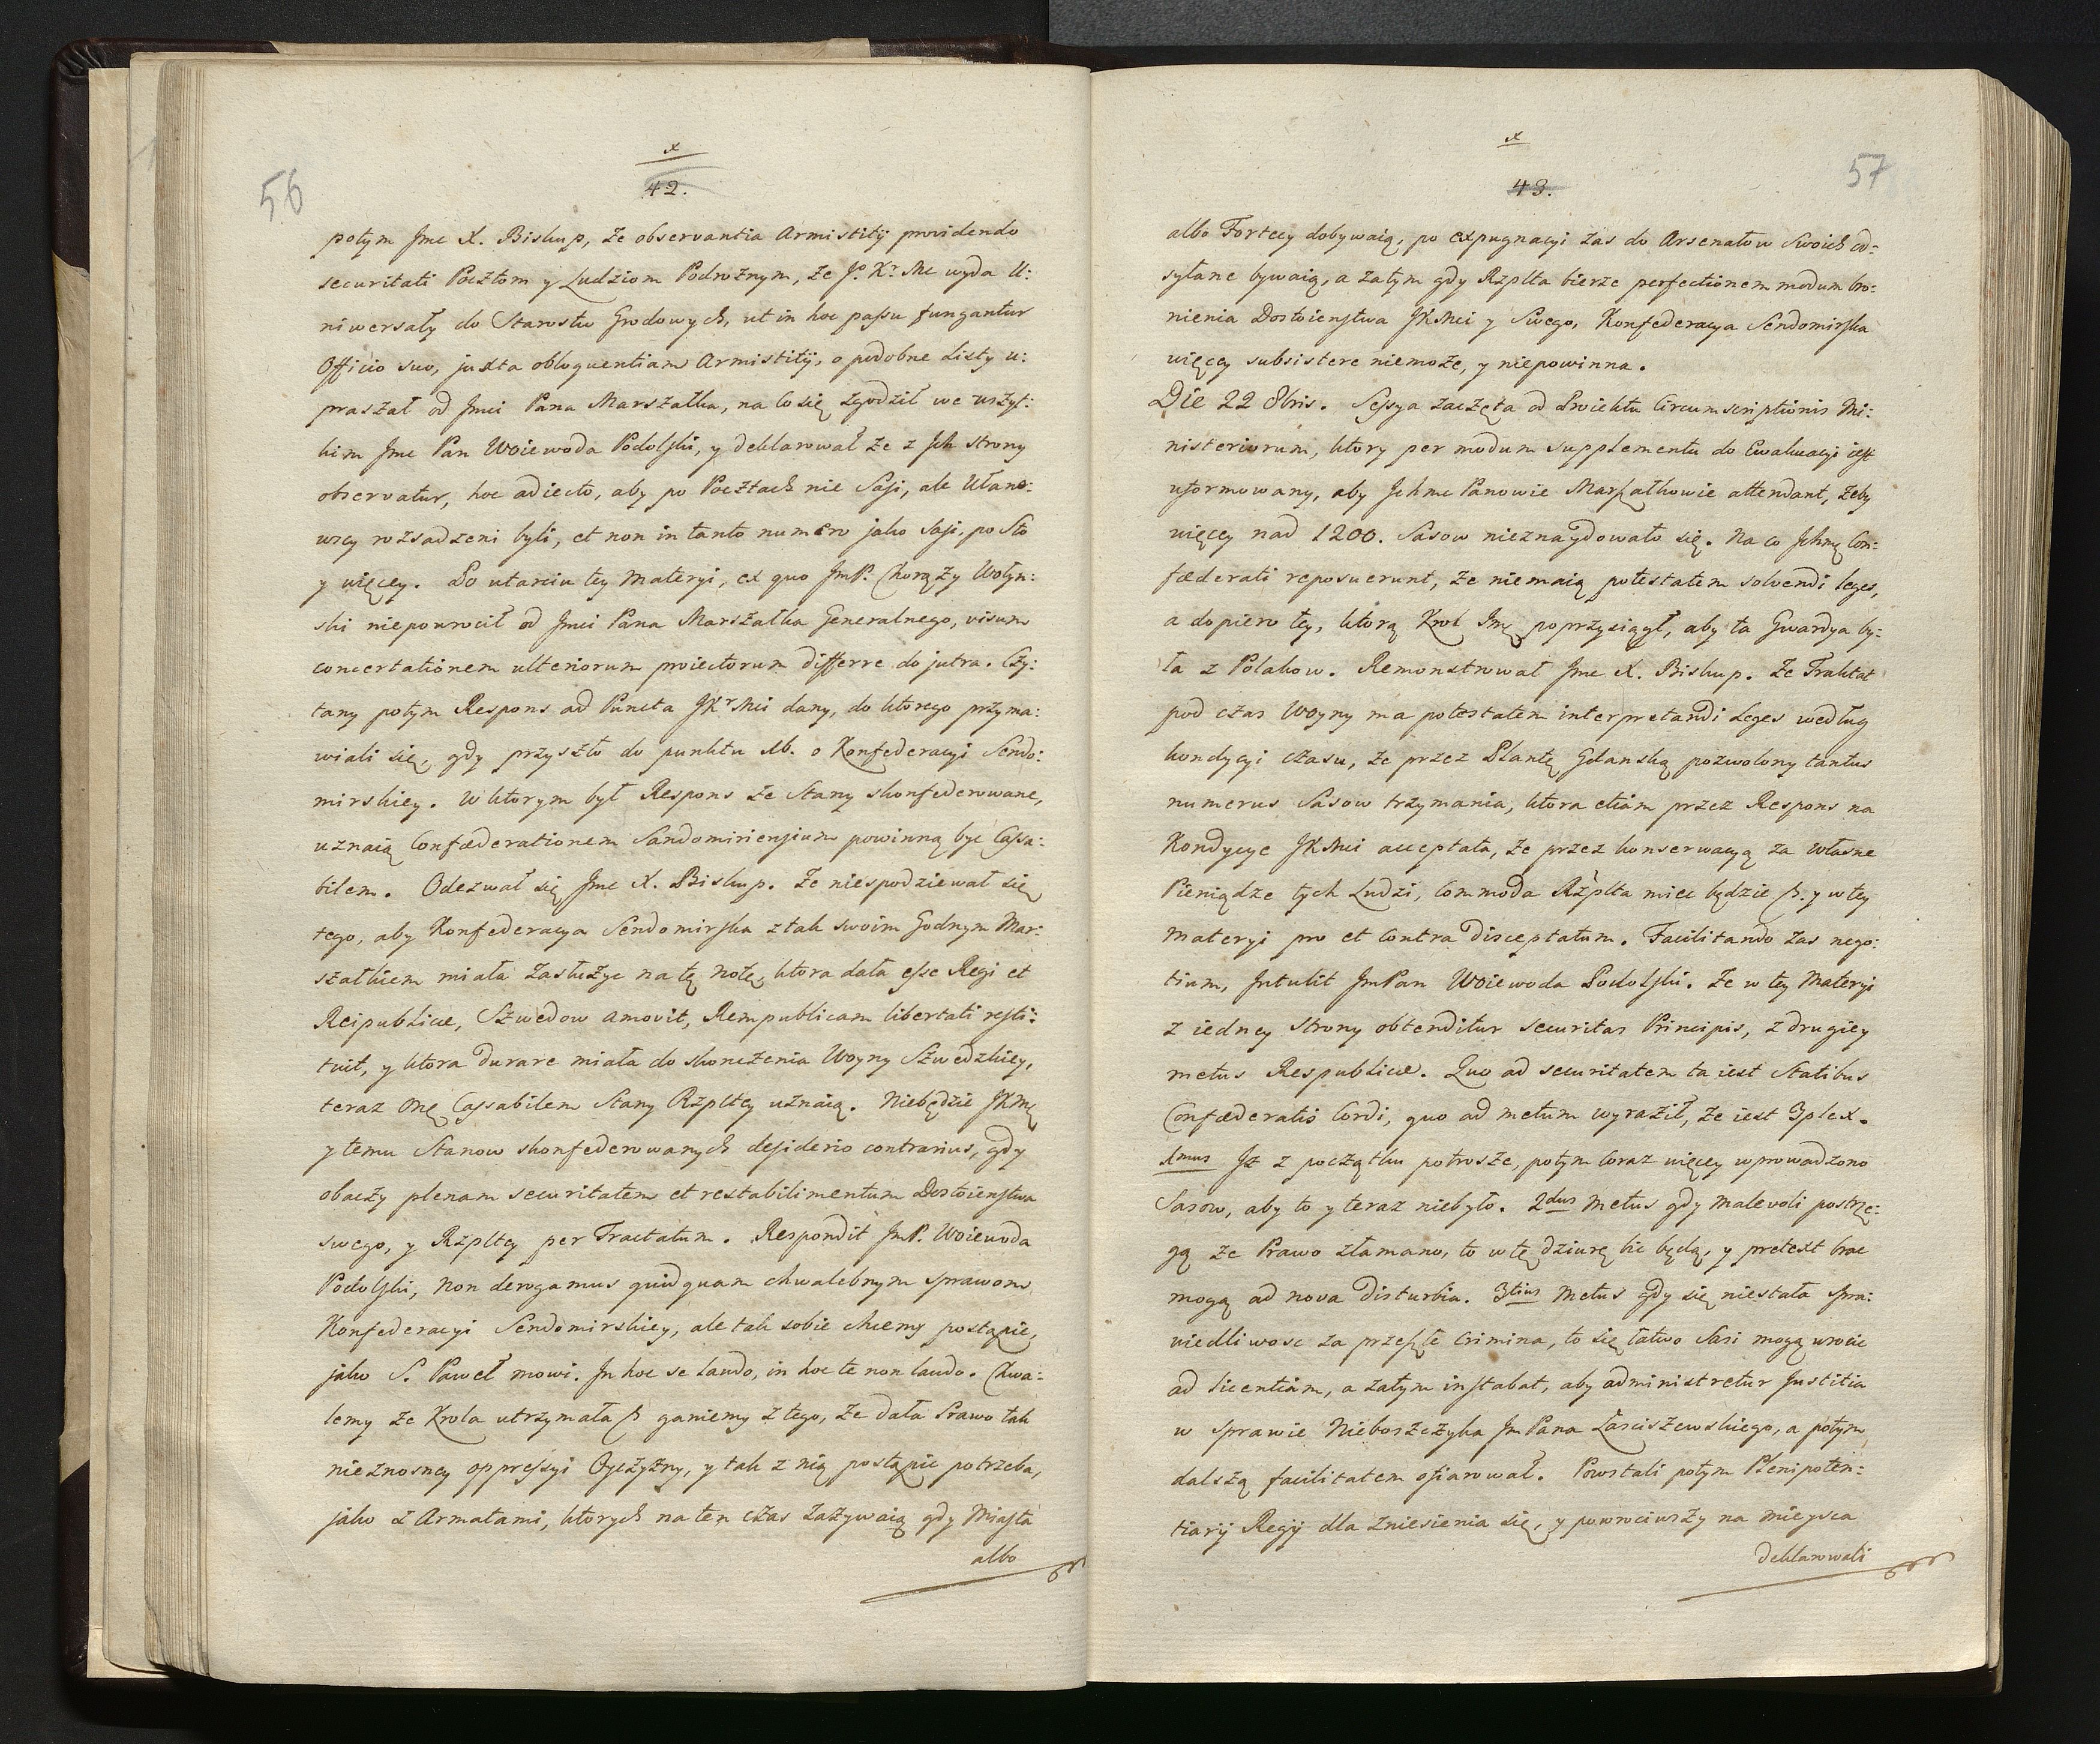 x
42.
56
potym Jmc X. Biskup, że observantia Armistitij providendo
securitati Pocztom y Ludziom Podrożnym, że Jo. Kr. Mc wyda U:
niwersały do Starostw Grodowych, ut in hoc passu fungantur
Officio suo, juxta obloquentiam Armistitij, o podobne Listy u:
praszał od Jmci Pana Marszałka, na co się zgodził we wszyt:
kim Jmc Pan Woiewoda Podolski, y deklarował że z Jch strony
observatur, hoc adiecto, aby po Pocztach nie Sasi, ale Ułano:
wcy rozsadzeni byli, et non in tanto numero jako Sasi, po Sto
y więcey. Po utarciu tey Materyi, ex quo JmP. Chorąży Wołyn:
ski niepowrocił od Jmci Pana Marszałka Generalnego, visum
concertationem ulteriorum proiectorum differre do jutra. Czy:
tany potym Respons ad Puncta JKr Mci dany, do ktorego przyma:
wiali się, gdy przyszło do punktu Xb. o Konfederacyi Sendo:
mirskiey. W ktorym był Respons że Stany skonfederowane,
uznaią Confæderationem Sandomiriensium powinną byc Cassa:
bilem. Odezwał się Jmc X. Biskup. że niespodziewał się
tego, aby Konfederacya Sendomirska z tak swoim Godnym Mar:
szałkiem miała zasłużyc na tę notę, ktora dała esse Regi et
Reipublicæ, Szwedow amovit, Rempublicam libertati resti:
tuit, y ktora durare miała do skonczenia Woyny Szwedzkiey,
teraz onę Cassabilem Stany Rzpltey uznaią. Niebędzie JKMę
y temu Stanow skonfederowanych desiderio contrarius, gdy
obaczy plenam securitatem et restabilimentum Dostoienstwa
swego, y Rzpltey per Tractatum. Respondit JmP. Woiewoda
Podolski, non derogamus quidquam chwalebnym sprawom
Konfederacyi Sendomirskiey, ale tak sobie chcemy postąpic,
jako S. Paweł mowi. In hoc se laudo, in hoc te non laudo. Chwa:
lemy że Krola utrzymała ß ganiemy z tego, że dała Prawo tak
nieznosney oppressyi Oyczyzny, y tak z nią postąpic potrzeba,
jako z Armatami, ktorych na ten czas zażywaią gdy Miasta
albo
x
43.
57
albo Fortecy dobywaią, po expugnacyi zas do Arsenałow Swoich od:
syłane bywaią, a zatym gdy Rzplta bierze perfectionem modum bro:
nienia Dostoienstwa JKMci y Swego, Konfederacya Sendomirska
więcey subsistere niemoże, y niepowinna.
Die 22 8bris. Sessya zaczęta od Proiektu Circumscriptionis Mi:
nisteriorum, ktory per modum supplementu do Ewakuacyi iest
uformowany, aby Jchmc Panowie Marszałkowie attendant, żeby
więcey nad 1200. Sasow nieznaydowało się. Na co Jchmę Con:
fæderati reposuerunt, że niemaią potestatem solvendi leges,
a dopiero tey, ktorą Krol Jmę poprzysiągł, aby ta Gwardya by:
ła z Polakow. Remonstrował Jmc X. Biskup. że Traktat
pod czas Woyny ma potestatem interpretandi Leges według
kondycyi czasu, że przez Plantę Gdanską pozwolony tantus
numerus Sasow trzymania, ktora etiam przez Respons na
Kondycye JKMci acceptata, że przez konserwacyą za własne
Pieniądze tych Ludzi, Commoda Rzplta miec będzie ß. y w tey
Materyi pro et Contra disceptatum. Facilitando zas nego:
tium, Intulit JmPan Woiewoda Podolski. że w tey Materyi
z iedney strony obtenditur securitas Principis, z drugiey
metus Respublicæ. Quo ad securitatem ta iest Statibus
Confæderatis Cordi, quo ad metum wyraził, że iest 3plex.
Xmus Jż z początku potrosze, potym coraz więcey wprowadzono
Sasow, aby to y teraz niebyło. 2dus Metus gdy malevoli postrze:
gą że Prawo złamano, to w tę dziurę bic będą, y pretext brac
mogą ad nova disturbia. 3tius Metus gdy się niestała spra:
wiedliwosc za przeszłe Crimina, to się łatwo Sasi mogą wrocic
ad licentiam, a zatym instabat, aby administretur Justitia
w sprawie Nieboszczyka JmPana Łasciszewskiego, a potym
dalszą facilitatem ofiarował. Powstali potym Plenipoten:
tiarij Regij dla zniesienia się, y powrociwszy na mieysca
deklarowali